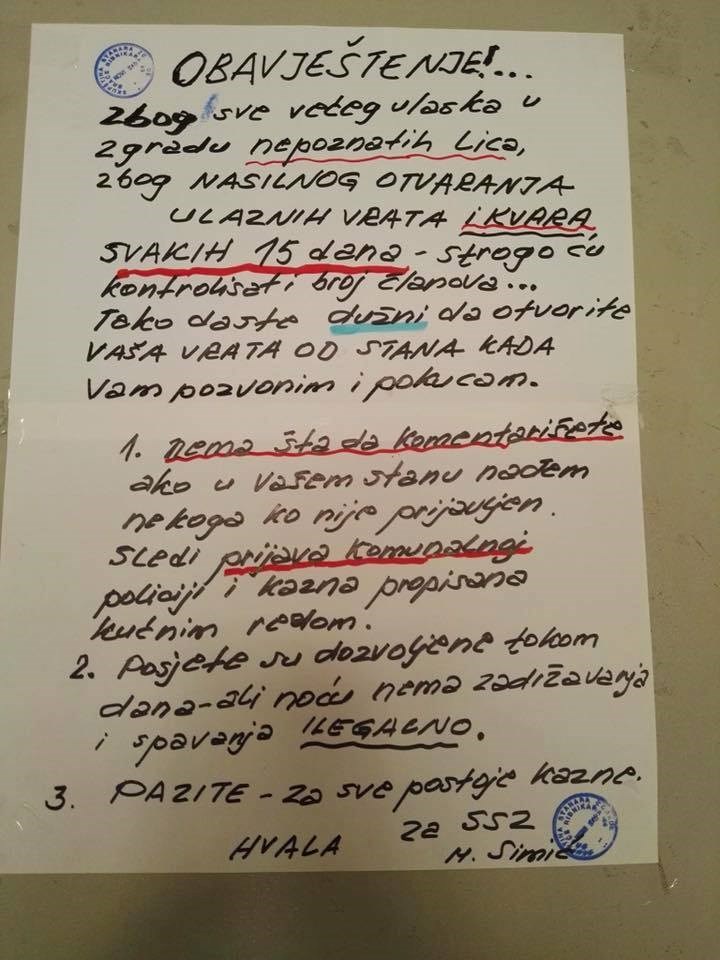 OBAVJEŠTENJE!...
zbog sve većeg ulaska u
zgradu nepoznatih lica,
zbog NASILNOG OTVARANJA
ULAZNIH VRATA i KVARA
SVAKIH 15 dana - strogo ću
kontrolisati broj članova...
Tako daste dužni da otvorite
VAŠA VRATA OD STANA KADA
Vam pozvonim i pokucam.
1. nema šta da komentarišete
ako u vašem stanu nađem
nekoga ko nije prijavljen.
Sledi prijava komunalnoj
policiji i kazna propisana
kućnim redom.
2. Posjete su dozvoljene tokom
dana-ali noću nema zadržavanja
i spavanja ILEGALNO.
3. PAZITE - za sve postoje kazne.
za SSZ
HVALA M. Simić